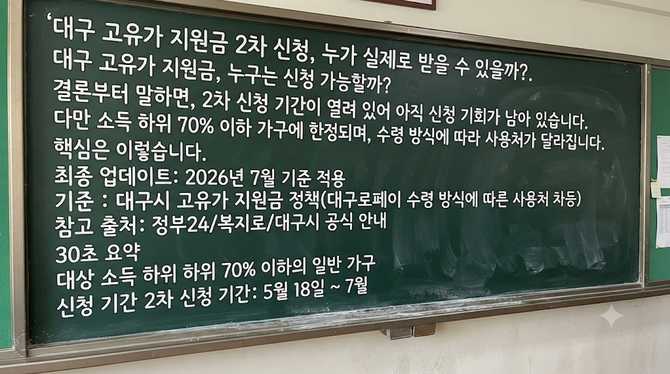 ‘대구 고유가 지원금 2차 신청, 누가 실제로 받을 수 있을까?.
대구 고유가 지원금, 누구는 신청 가능할까?
결론부터 말하면, 2차 신청 기간이 열려 있어 아직 신청 기회가 남아 있습니다.
다만 소득 하위 70% 이하 가구에 한정되며, 수령 방식에 따라 사용처가 달라집니다.
핵심은 이렇습니다.
최종 업데이트: 2026년 7월 기준 적용
기준 : 대구시 고유가 지원금 정책(대구로페이 수령 방식에 따른 사용처 차등)
참고 출처: 정부24/복지로/대구시 공식 안내
30초 요약
대상 소득 하위 하위 70% 이하의 일반 가구
신청 기간 2차 신청 기간: 5월 18일 ~ 7월